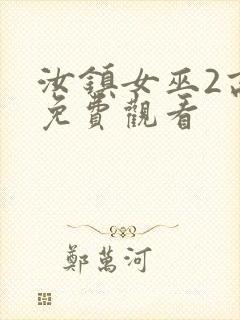 汝鎮女巫2高
免費觀看
鄭萬河